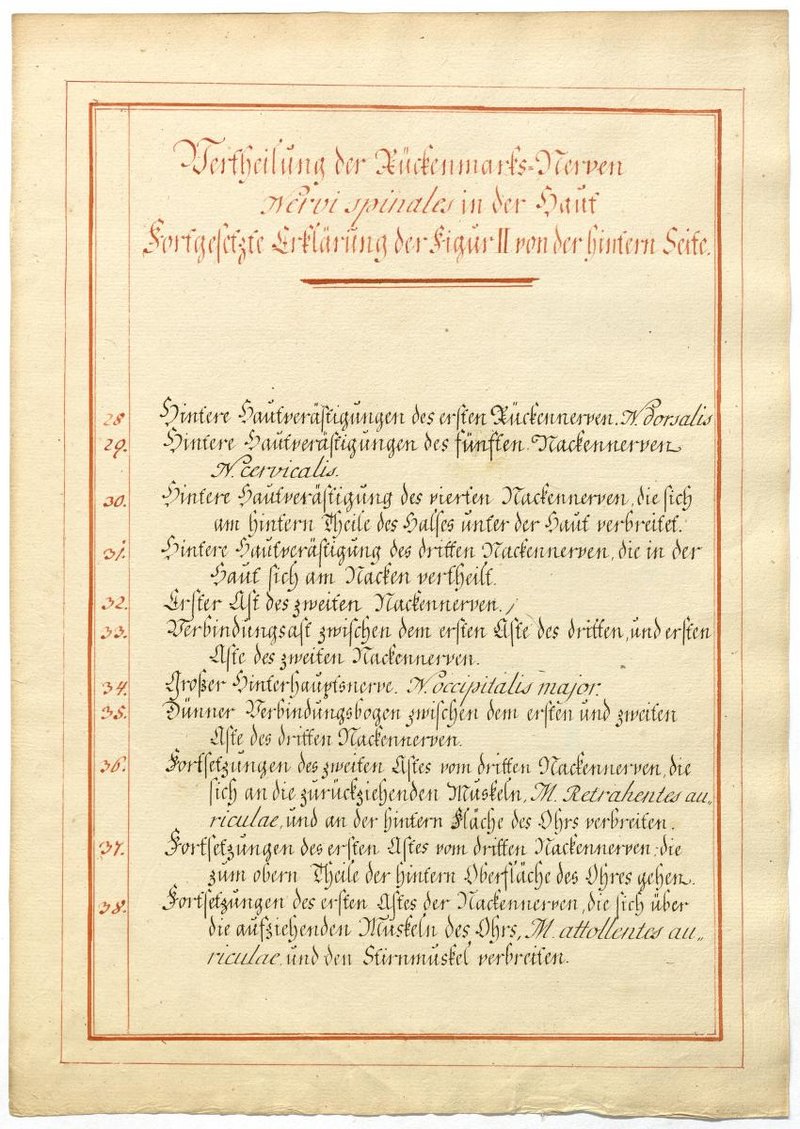 Vertheilung der Rückenmarks=Nerven
Nervi spinales in der Haut
Fortgesetzte Erklärung der Figur II von der hintern Seite.
28 Hintere Hautverästigungen des ersten Rückennerven. N. dorsalis
29. Hintere Hautverästigungen des fünften Nackennerven
N. cervicalis.
30. Hintere Hautverästigung des vierten Nackennerven, die sich
am hintern Theile des Halses unter der Haut verbreitet.
31. Hintere Hautverästigung des dritten Nackennerven, die in der
Haut sich am Nacken vertheilt.
32. Erster Ast des zweiten Nackennerven.
33. Verbindungsast zwischen dem ersten Aste des dritten, und ersten
Aste des zweiten Nackennerven.
34. Großer Hinterhauptsnerve. N. occipitalis major.
35. Dünner Verbindungsbogen zwischen dem ersten und zweiten
Aste des dritten Nackennerven.
36. Fortsetzungen des zweiten Astes vom dritten Nackennerven, die
sich an die zurückziehenden Muskeln, M. Retrahentes au„
riculae, und an der hintern Fläche des Ohrs verbreiten.
37. Fortsetzungen des ersten Astes vom dritten Nackennerven, die
zum obern Theile der hintern Oberfläche des Ohres gehen.
38. Fortsetzungen des ersten Astes der Nackennerven, die sich über
die aufziehenden Muskeln des Ohrs, M. attollentes au„
riculae, und den Stirnmuskel verbreiten.